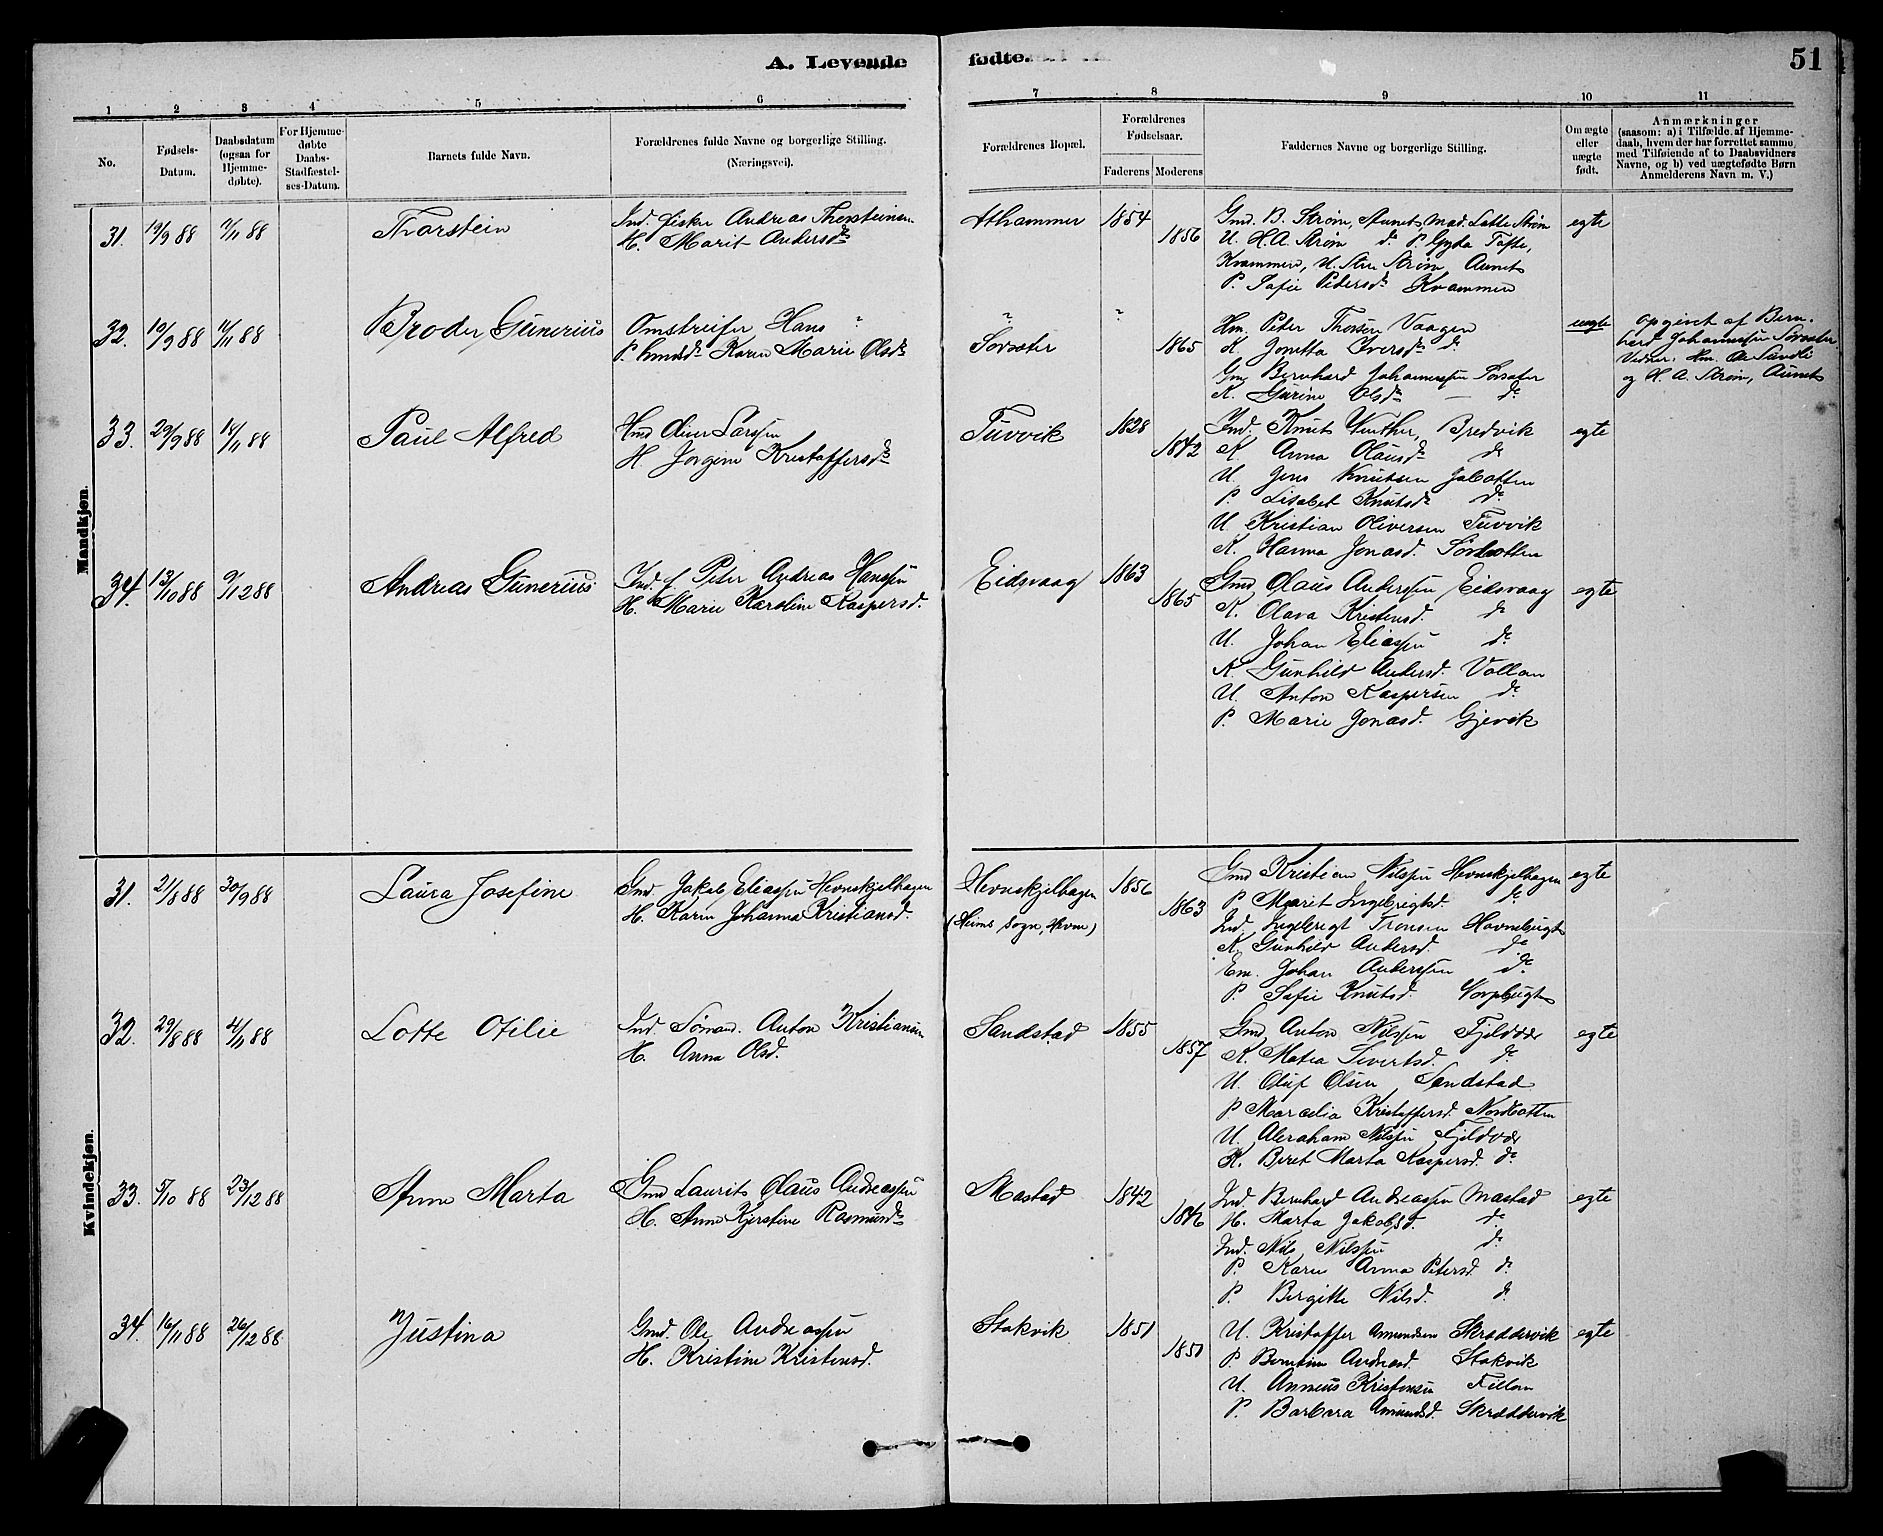 A. Levende fødte.
51
1 2 3 4 5 6 7 8 9 10 11
No.
Fødsels-Datum.
Daabsdatum (ogsaa for Hjemme-døbte).
For Hjemme-døbte Daabs-Stadfæstel-ses-Datum.
Barnets fulde Navn.
Forældrenes fulde Navne og borgerlige Stilling. (Næringsvei).
Forældrenes Bopæl.
Forældrenes Fødselsaar.
Faderens Moderens
Faddernes Navne og borgerlige Stilling.
Om ægte eller uægte født.
Anmærkninger (saasom: a) i Tilfælde af Hjemme-daab, hvem der har forrettet samme, med Tilføiende af to Daabsvidners Navne, og b) ved uægtefødte Børn Anmelderens Navn m. V.)
Mandkjøn.
31. 19/9 88 4/11 88 Thorstein
Ind. fisker Andreas Thorsteinsen
H. Marit Andersdr
Athammer 1854 1856
Gmd. B. Strøm, Aunet, Mad. Lotte Strøm
U. H.A. Strøm do P. Gyda Tofte,
Krammen, U. Strøm Aunet
P. Sofie Pedersdr Krammen
egte
32. 19/9 88 4/11 88 Broder Gunerius
Omstreifer Hans ?
P. Karen Marie Olsdr
? Sørsæter ? 1865
Hm. Peter Thorsen Vaagen
K. Jonetta Iversdr do
Gm. Bernhard Johannessen Sørsæter
K. Gurine Olsdr — do
uegte
opgivet af Bern-
hard Johannessen Sørsæter
Vidner: Hm. Ole Sandli
og H. A. Strøm, Aunet
33. 29/9 88 14/11 88 Paul Alfred
Hmd Oliver Larssen
H. Jorgine Kristoffersdr
Tuvvik 1828 1842
Ind. Knut Winther, Bredvik
K. Anna Olausdr do
U. Jens Knutsen Jøbotten
P. Lisabet Knutsdr do
U. Kristian Oliversen Tuvvik
K. Hanna Jonasd. Sørbotten
egte
34. 13/10 88 9/12 88 Andreas Gunerius
Ind. f Peter Andreas Hanssen
H. Marie Karoline Kaspersd.
Eidsvaag 1863 1865
Gmd. Olaus Anderssen Eidsvaag
K. Olava Kristensd. do
U. Johan Eliassen do
K. Gunhild Andersd. Vollan
U. Anton Kaspersen do
P. Marie Jonasd. Gjevik
egte
Kvindekjøn.
31. 21/8 88 30/9 88 Laura Josefine
Gmd. Jakob Eliassen Hevnskjelhagen
H. Karen Johanna Kristiansd.
Hevnskjelhagen
(Heims sogn, Hevne)
1856 1863
Gmd Kristian Nilssen Hevnskjelhagen
P. Marit Ingebrigtsd. do
Ind. Ingebrigt Tronsen Havnebugt
K. Gunhild Andersd. do
Em. Johan Anderssen do
P. Sofie Knutsd. Vorpbugt
egte
32. 29/8 88 4/11 88 Lotte Otilie
Ind. Sømand. Anton Kristiansen
H. Anna Olsd.
Sandstad 1855 1857
Gmd Anton Nilssen Fjeldvær
K. Matea Sivertsd. do
U. Oluf Olsen Sandstad
P. Marcelia Kristoffersd. Nordbotten
U. Abraham Nilssen Fjeldvær
K. Beret Marta Kaspersd. do
egte
33. 5/10 88 23/12 88 Anne Marta
Gmd Laurits Olaus Andreassen
H. Anne Kjerstine Rasmusdr
Mastad 1842 1846
Ind. Bernhard Andreassen Mastad
H. Marta Jakobsd. do
Ind. Nils Nilssen do
P. Karen Anna Petersd. do
P. Bergitte Nilsd. do
egte
34. 16/11 88 26/12 88 Justina
Gmd. Ole Andreassen
H. Kristine Kristensd.
Stokvik 1851 1850
U. Kristoffer Amundsen Skræddervik
P. Berntine Andreasd. Stokvik
U. Anneus Kristensen Fillan
P. Barbara Amundsd. Skræddervik
egte